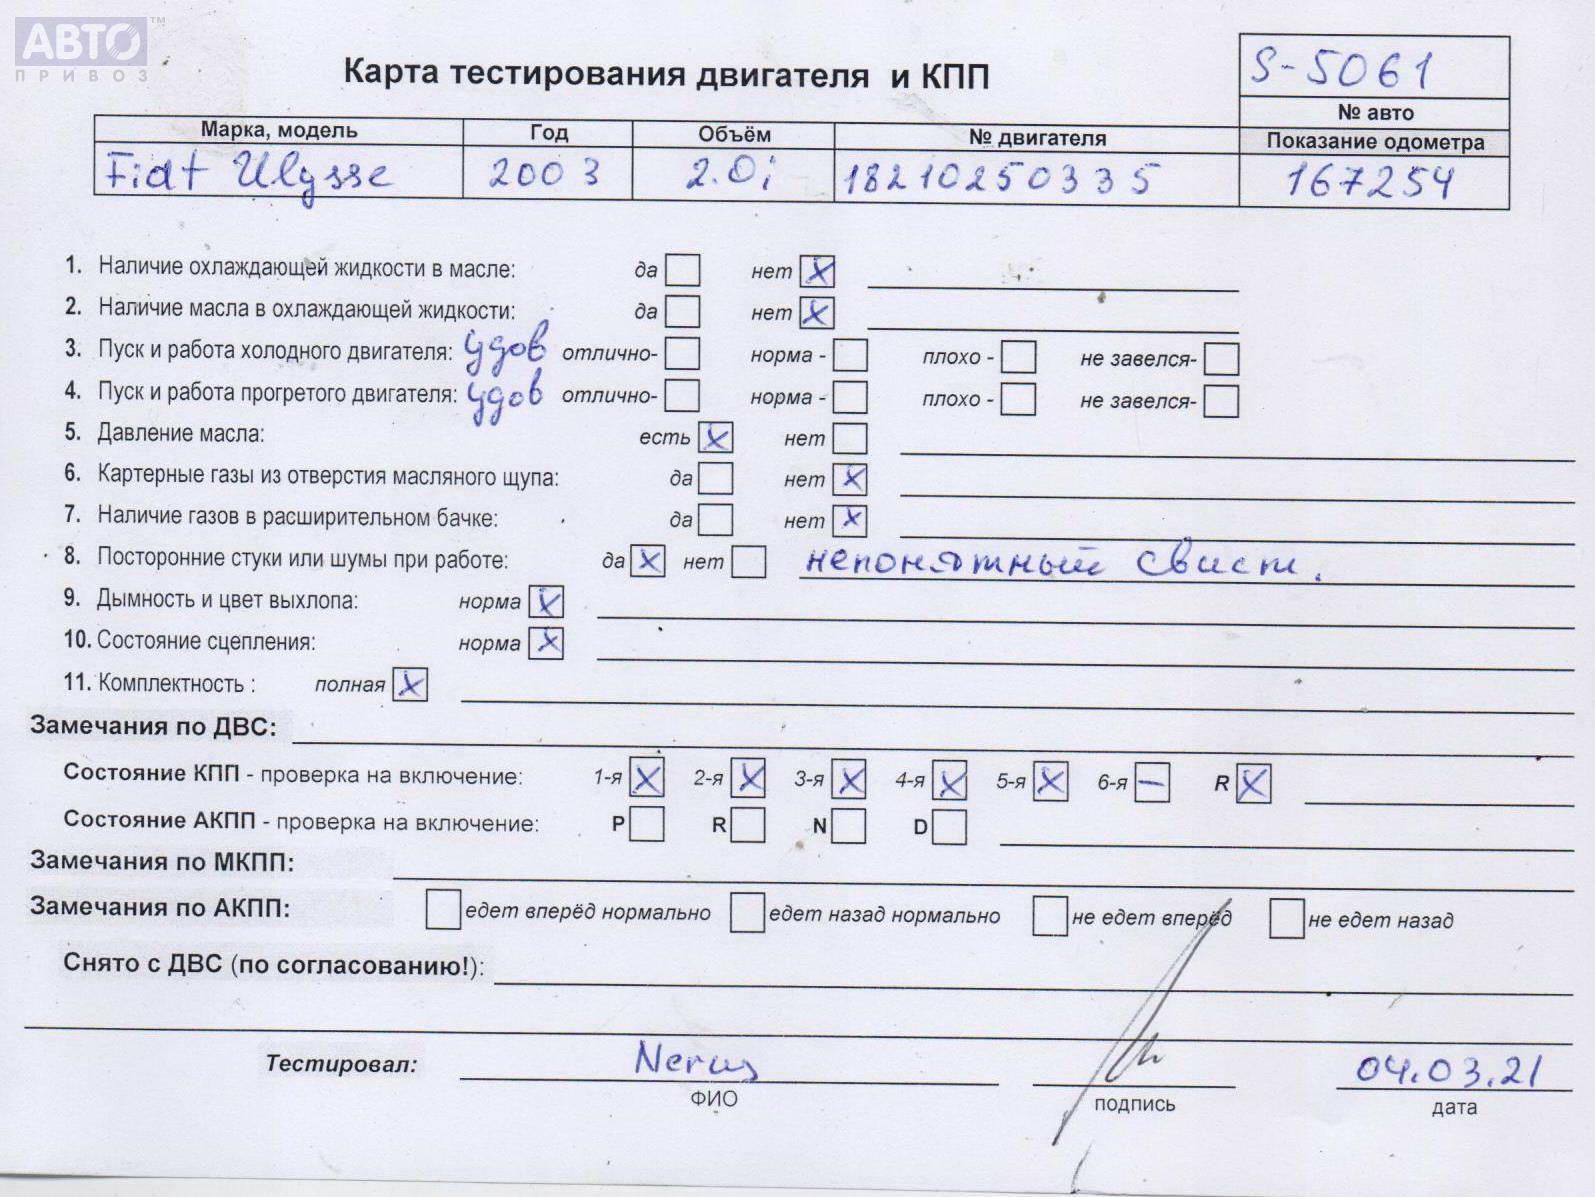 АВТО™
ПРИВОЗ
Карта тестирования двигателя и КПП
S-5061
№ авто
Марка, модель Год Объём № двигателя Показание одометра
Fiat Ulysse 2003 2.0i 18210250335 167254
1. Наличие охлаждающей жидкости в масле: да нет X
2. Наличие масла в охлаждающей жидкости: да нет X
3. Пуск и работа холодного двигателя: удов отлично- норма - плохо - не завелся-
4. Пуск и работа прогретого двигателя: удов отлично- норма - плохо - не завелся-
5. Давление масла: есть X нет
6. Картерные газы из отверстия масляного щупа: да нет X
7. Наличие газов в расширительном бачке: да нет X
8. Посторонние стуки или шумы при работе: да X нет непонятный свист.
9. Дымность и цвет выхлопа: норма X
10. Состояние сцепления: норма X
11. Комплектность : полная X
Замечания по ДВС:
Состояние КПП - проверка на включение: 1-я X 2-я X 3-я X 4-я X 5-я X 6-я — R X
Состояние АКПП - проверка на включение: P R N D
Замечания по МКПП:
Замечания по АКПП: едет вперёд нормально едет назад нормально не едет вперёд не едет назад
Снято с ДВС (по согласованию!):
Тестировал: 04.03.21
ФИО подпись дата